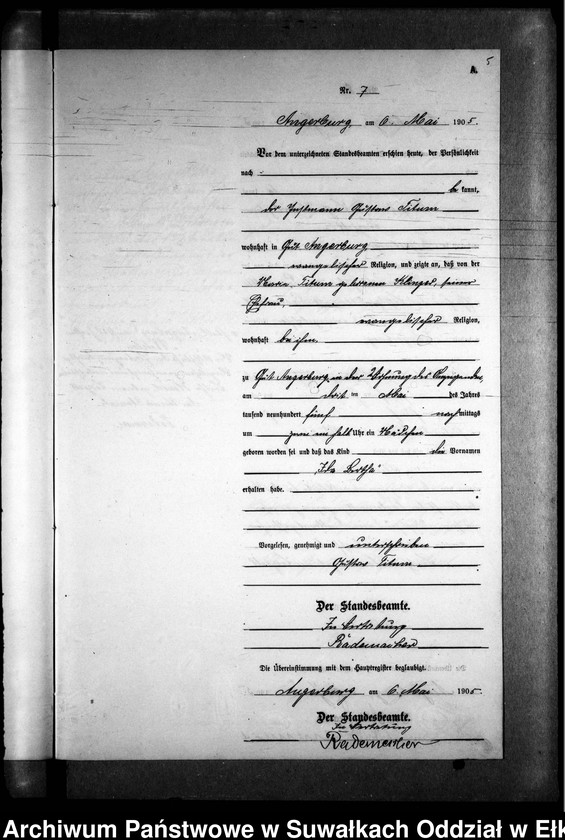 5
A.
Nr. 7
Angerburg am 6. Mai 1905.
Vor dem unterzeichneten Standesbeamten erschien heute, der Persönlichkeit
nach
be kannt,
der Instmann Gustav Titum
wohnhaft in Gut Angerburg
evangelischer Religion, und zeigte an, daß von der
Titum geborenen seiner
Ehefrau,
evangelischer Religion,
wohnhaft bei ihm
zu Gut Angerburg, in der Wohnung des Anzeigenden,
am drit ten Mai des Jahres
tausend neunhundert fünf nachmittags
um zwei ein halb Uhr ein Mädchen
geboren worden sei und daß das Kind die Vornamen
„Ida Bertha"
erhalten habe.
Vorgelesen, genehmigt und unterschrieben
Gustav Titum
Der Standesbeamte.
In Vertretung
Rademacher
Die Übereinstimmung mit dem Hauptregister beglaubigt.
Angerburg am 6. Mai 1905
Der Standesbeamte.
In Vertretung
Rademacher
Archiwum Państwowe w Suwałkach Oddział w Ełk